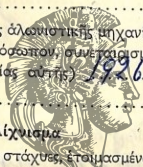 ἁλωνιστικῆς μηχαν
όσωπον, συνεταιρισμ
ίας αὐτῆς) 1926
ίχνισμα
στάχυες, ἑτοιμασμέν